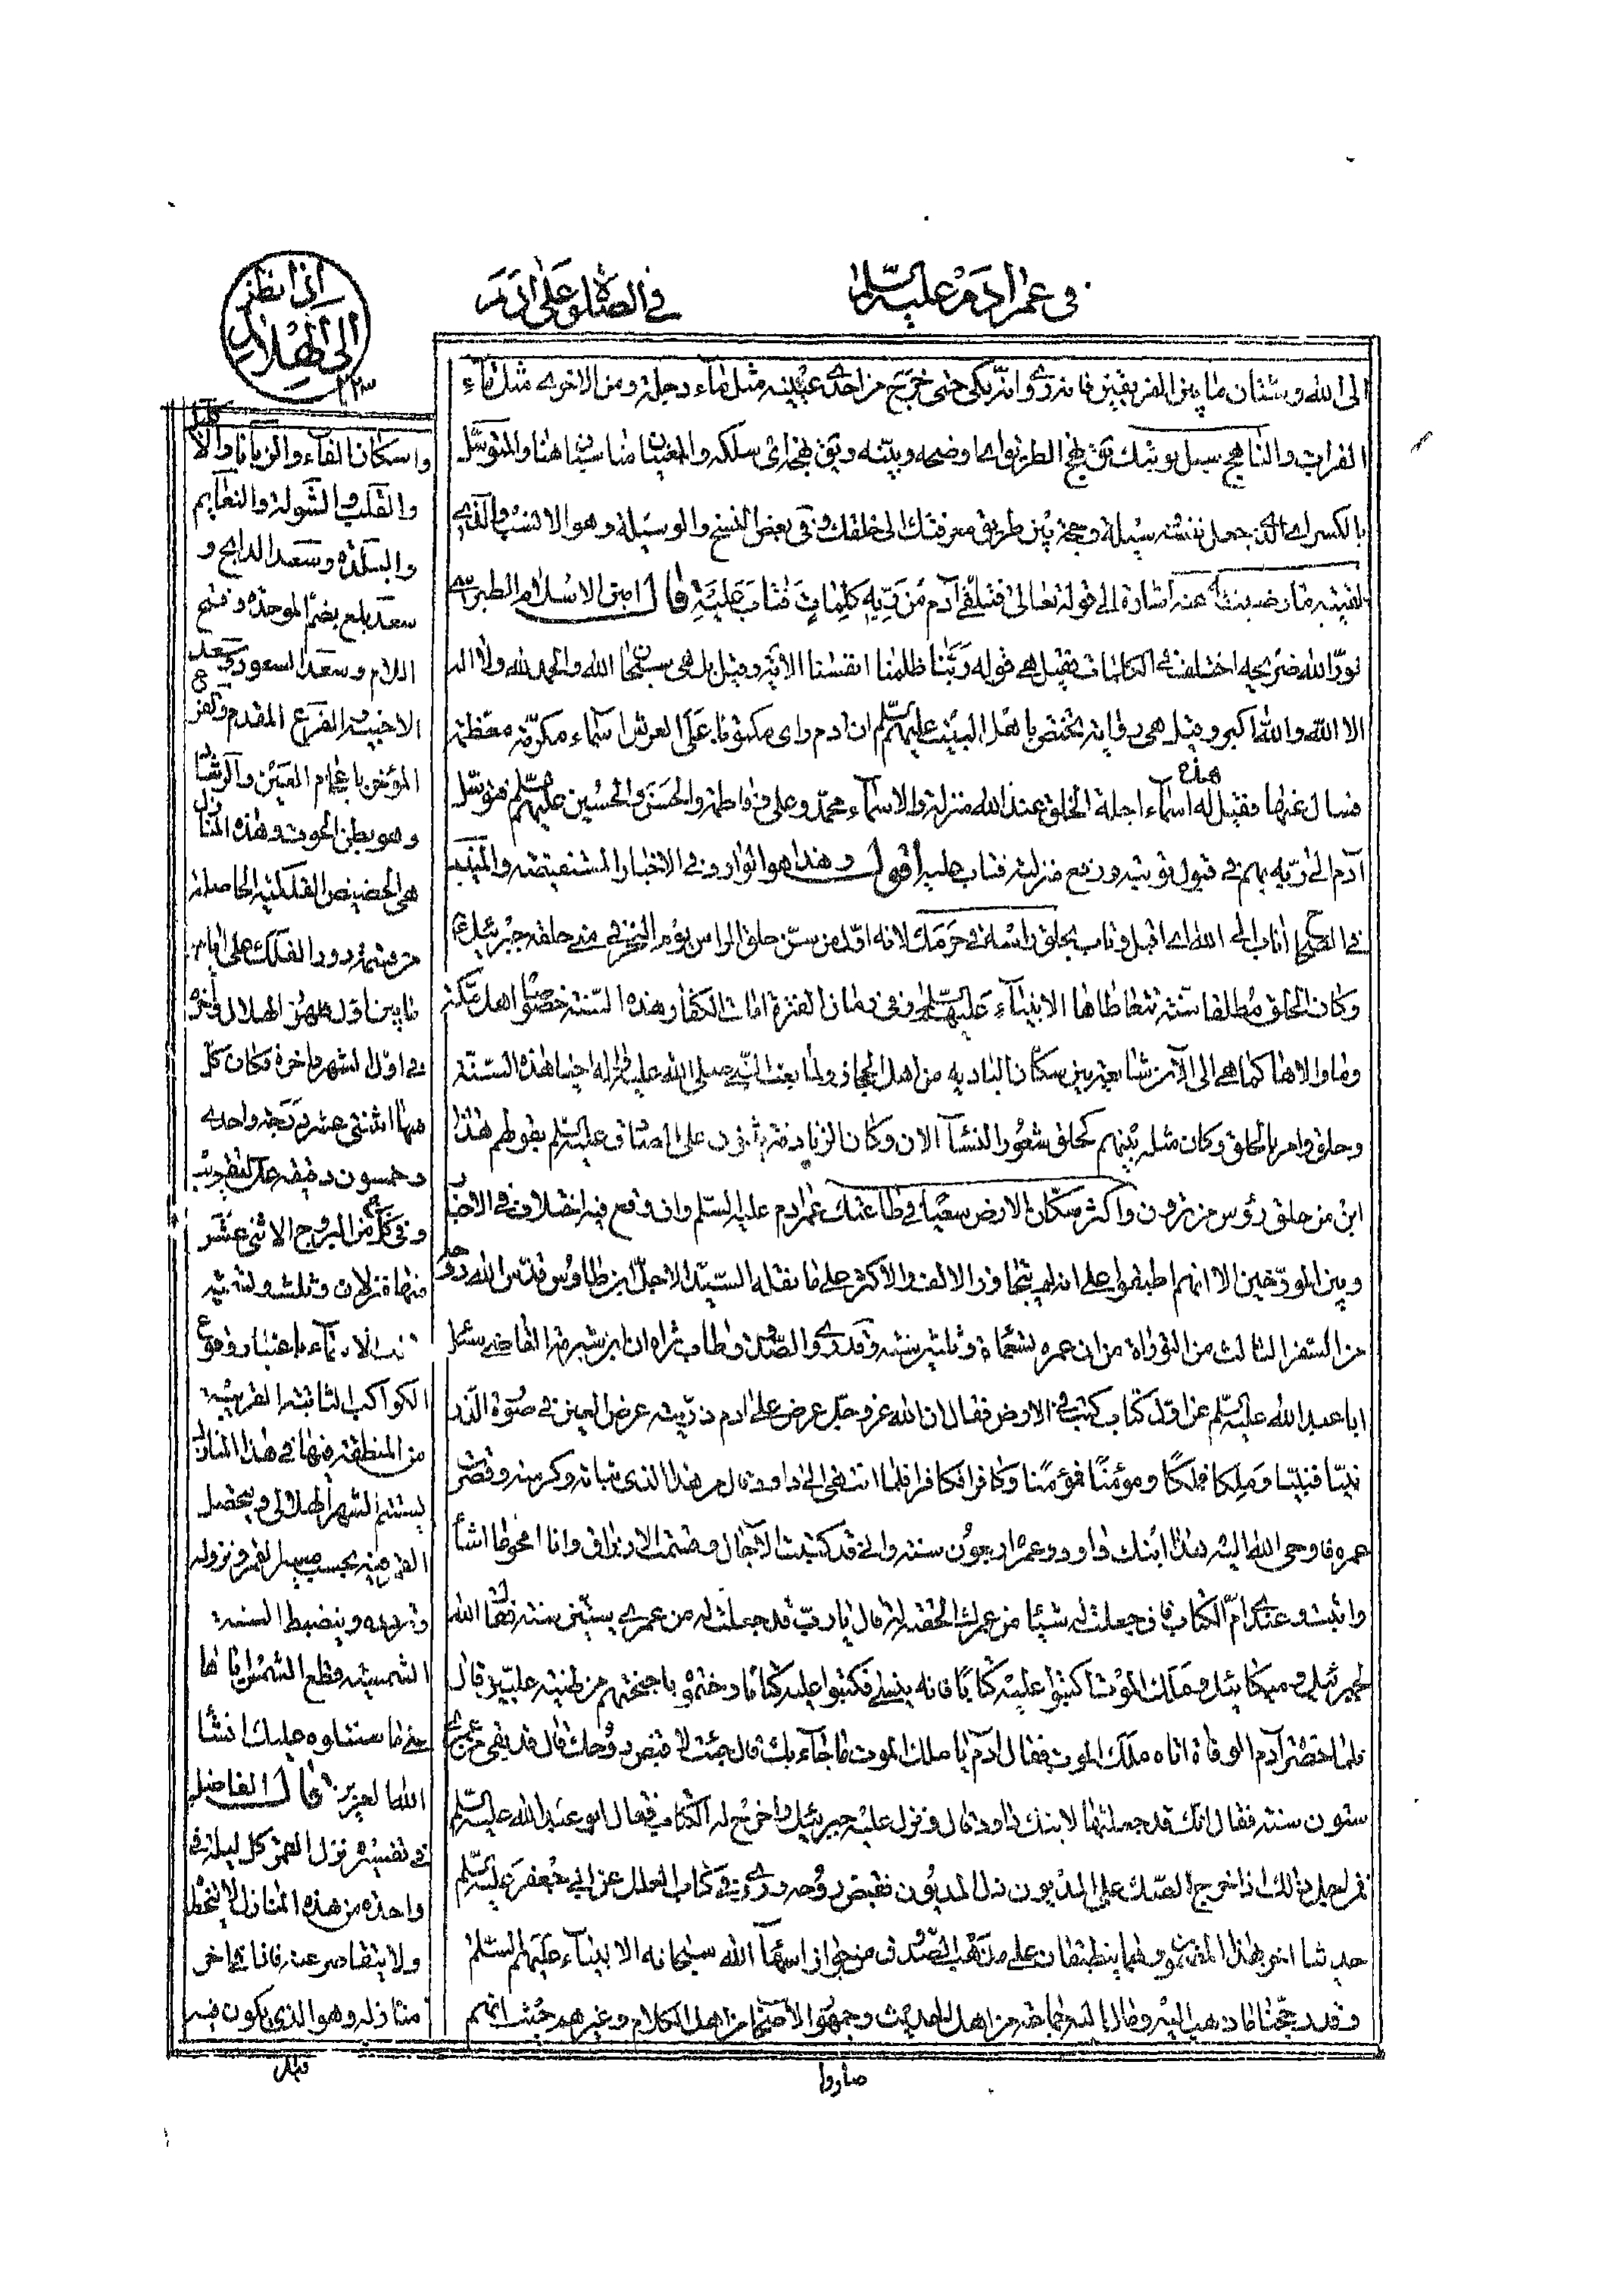 في عمر ادم عليه السلم
في الصلوة على ادم
اذا نظر
الى الهلال
٢٢٣
الى الله وشتان ما بين الفريقين فانه روى وانه بكى حتى خرج من احدى عينيه مثل ماء دجلة ومن الاخرى مثل ماء
الفرات والناهج سبيل توبتك من نهج الطريق اى اوضحه وبينه ومن نهج اى سلكه والمعنيان مناسبان هنا والمتوسل
بالكسر اى الذى جعل نفسه وسيلة وحجة بين طريق معرفتك الى خلقك وفى بعض النسخ والوسيلة وهو الانسب والذى
لقيته ما رضيت به عنه اشارة الى قوله تعالى فتلقى آدم من ربه كلمات فتاب عليه قال امين الاسلام الطبرسى
نور الله ضريحه اختلف فى الكلمات فقيل هى قوله ربنا ظلمنا انفسنا الاية وقيل بل هى سبحان الله والحمد لله ولا اله
الا الله والله اكبر وقيل هى رواية تختص باهل البيت عليهم السلم ان ادم راى مكتوبا على العرش اسماء مكرمة معظمة
فسال عنها فقيل له هذه اسماء اجلة الخلق عند الله منزلة والاسماء محمد وعلى وفاطمة والحسن والحسين عليهم السلم فتوسل
آدم الى ربه بهم فى قبول توبته ورفع منزلته فتاب عليه اقول وهذا هو الوارد فى الاخبار المستفيضة والمنيب
فى الصحاح اناب الى الله اى اقبل وتاب بحلق راسه فى حرمك لانه اول من سن حلق الراس يوم النحر فى منى حلقه جبرئيل ع
وكان الحلق مطلقا سنة تتعاطاها الانبياء عليهم السلم وفى زمان الفترة امات الكفار هذه السنة خصوصا اهل مكة
وما والاها كما هى الى الان شايعة بين سكان البادية من اهل الحجاز ولما بعث النبى صلى الله عليه واله احيا هذه السنة
وحلق وامر بالحلق وكان مثله بينهم كحلق شعور النساء الان وكان الزنادقة على الصادق عليه السلم بقولهم هذا
ابن من حلق رؤس من ترون واكثر سكان الارض سعيا فى طاعتك عمر ادم عليه السلم وان وقع فيه اختلاف فى الاخبار
وبين المورخين الا انهم اطبقوا على انه لم يتجاوز الالف والاكثر على ما نقله السيد الاجل ابن طاوس قدس الله روحه
من السفر الثالث من التوراة من ان عمره تسعمائة وثلثين سنة وقد روى الصدوق طاب ثراه ان ابن شبرمة القاضى سئل
ابا عبد الله عليه السلم عن اول كتاب كتب فى الارض فقال ان الله عز وجل عرض على ادم ذريته عرض العين فى صورة الذر
نبيا فنبيا وملكا فملكا ومؤمنا فمؤمنا وكافرا فكافرا فلما انتهى الى داود قال من هذا الذى نباته وكرمته وقصرت
عمره فاوحى الله اليه هذا ابنك داود وعمره اربعون سنة وانى قد كتبت الاجال وقسمت الارزاق وانا امحو ما اشاء
واثبت وعندى ام الكتاب فان جعلت له شيئا من عمرك الحقته له قال يا رب قد جعلت له من عمرى ستين سنة فقال الله
لجبرئيل وميكائيل وملك الموت اكتبوا عليه كتابا فانه ينسى فكتبوا عليه كتابا وختموه باجنحتهم من طينة عليين قال
فلما حضر آدم الوفاة اتاه ملك الموت فقال ادم يا ملك الموت ما جاء بك قال جئت لاقبض روحك قال قد بقى من عمرى
ستون سنة فقال انك قد جعلتها لابنك داود قال ونزل عليه جبرئيل واخرج له الكتاب فقال ابو عبد الله عليه السلم
فمن اجل ذلك اذا خرج الصك على المديون ذل المديون فقبض روحه وروى فى كتاب العلل عن ابى جعفر عليه السلم
حديثا اخر بهذا المضمون وهما ينطبقان على مذهب الصدوق من جواز اسهاء الله سبحانه الانبياء عليهم السلم
وقد رجحنا ما ذهب اليه وقال به جماعة من اهل الحديث وجمهور الاصحاب من اهل الكلام وغيرهم حيث انهم
صاروا
واسكان الفاء والزبانا والاكليل
والقلب والشولة والنعايم
والبلدة وسعد الذابح و
سعد بلع بضم الموحدة وفتح
اللام وسعد السعود وسعد
الاخبية والفرغ المقدم والفرغ
المؤخر باعجام الغين والرشا
وهو بطن الحوت وهذه المنازل
هى الحضيض الفلكية الحاصلة
من قسمة دور الفلك على ايام
ما بين اول ظهور الهلال واخره
فى اول الشهر واخره فكان كل
منها اثنتى عشرة درجة واحدى
وخمسون دقيقة على التقريب
وفى كل من البروج الاثنى عشر
منها منزلان وثلث وتسمية
تلك الاسماء باعتبار وقوع
الكواكب الثابتة القريبة
من المنطقة فيها فى هذا المنازل
يستتم الشهر الهلالى ويحصل
الفرق فيه بحسب مسير القمر ونزوله
وتردده وينضبط السنة
الشمسية وقطع الشمس اياها
على ما سنتلوه عليك انشاء
الله العزيز قال الفاضل
فى تفسيره نزل القمر كل ليلة فى
واحدة من هذه المنازل لا يتخطاها
ولا يتقاصر عنه فاذا كان فى اخر
منازله وهو الذى يكون فيه
قبل